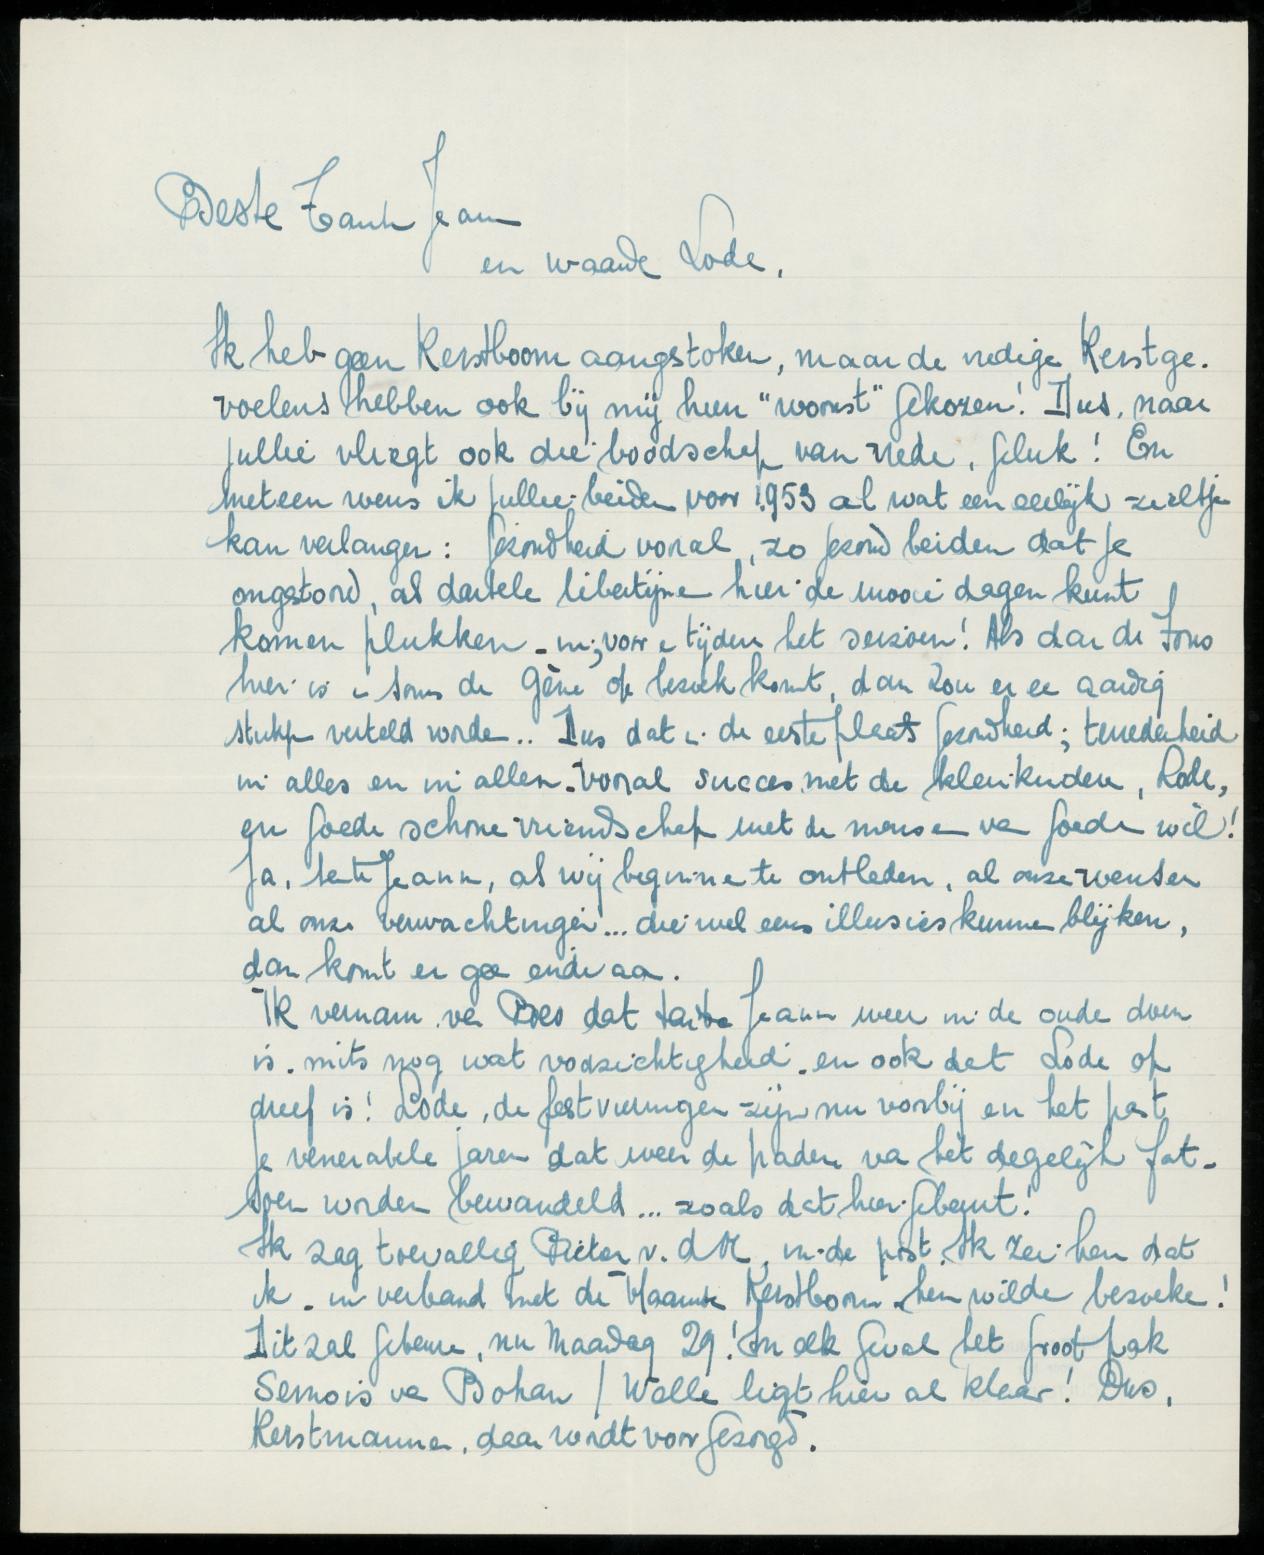 Beste Tante Jeann
en waarde Lode,
Ik heb geen Kerstboom aangestoken, maar de vredige Kerstge-
voelens hebben ook bij mij hun "woonst" gekozen! Dus, naar
jullie vliegt ook die boodschap van vrede, geluk! En
meteen wens ik jullie beiden voor 1953 al wat een eerlijk zieltje
kan verlangen: gezondheid vooral, zo gezond beiden dat je
ongestoord, als dartele libertijnen hier de mooie dagen kunt
komen plukken - in, voor en tijdens het seizoen! Als dan de Fons
hier is en soms de Gène op bezoek komt, dan zou er een aardig
stukje verteld worden.. Dus dat in de eerste plaats gezondheid; tevredenheid
in alles en in allen. Vooral succes met de kleinkinderen, Lode,
en goede schone vriendschap met de mensen van goeden wil!
Ja, tante Jeann, als wij beginnen te ontleden, al onze wensen
al onze verwachtingen... die wel eens illusies kunnen blijken,
dan komt er geen einde aan.
Ik vernam van dat tante Jeann weer in de oude doen
is - mits nog wat voorzichtigheid - en ook dat Lode op
dreef is! Lode, de feestvieringen zijn nu voorbij en het past
je venerabele jaren dat weer de paden van het degelijk fat-
soen worden bewandeld... zoals dat hier gebeurt!
Ik zag toevallig Pieter v. d M, in de post. Ik zei hem dat
ik - in verband met de Vlaamse Kerstboom - hem wilde bezoeken!
Dit zal gebeuren, nu Maandag 29! In elk geval het groot pak
Semois van Bohan / Walle ligt hier al klaar! Dus,
Kerstmannen, daar wordt voor gezorgd.